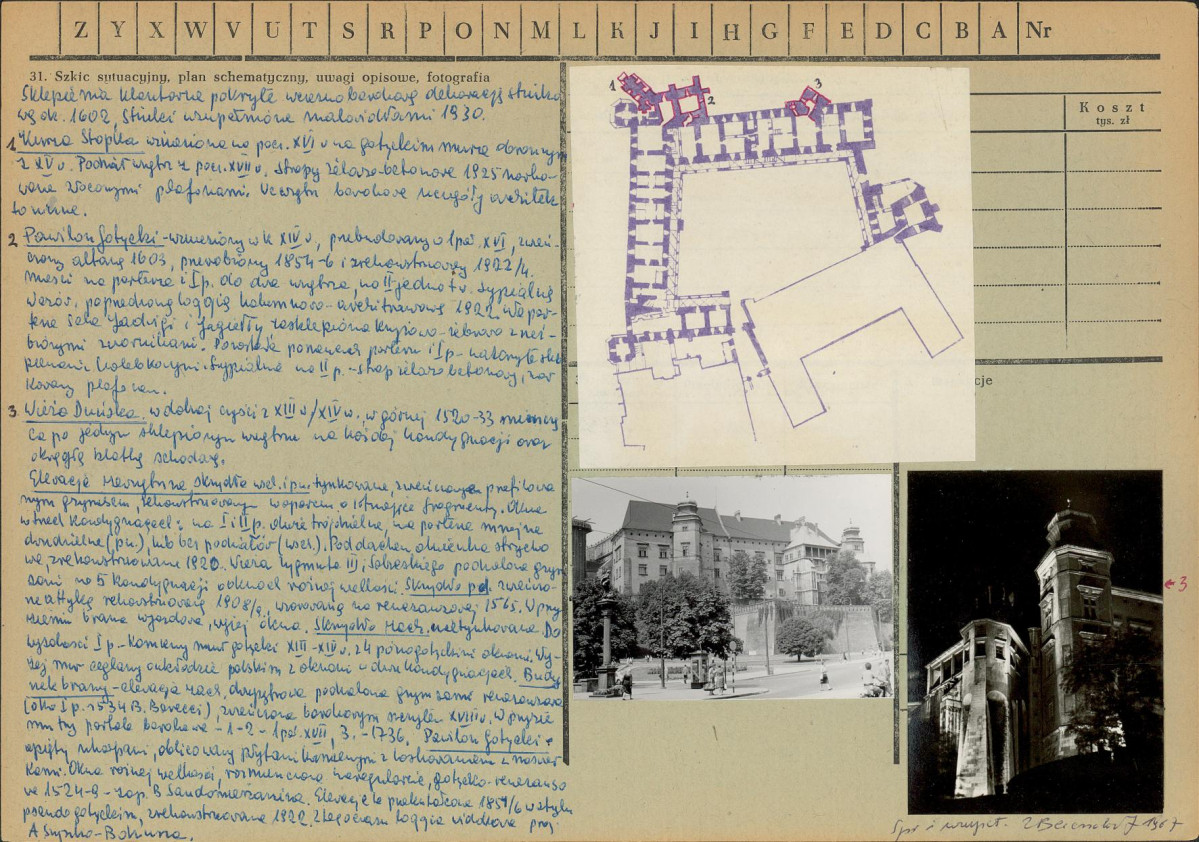 Z Y X W V U T S R P O N M L K J I H G F E D C B A Nr
31. Szkic sytuacyjny, plan schematyczny, uwagi opisowe, fotografia
Sklepienia klasztorne pokryte wczesno barokową dekoracją
ok. 1602, Stiuki uzupełnione malowidłami 1930.
1 Kurza Stopka wzniesiona na pocz. XVI w na gotyckim murze obronnym
z XV w. Podział wnętrz z pocz. XVII w. Stropy żelazo-betonowe 1925
plafonami. barokowe
2 Pawilon Gotycki - wzniesiony w k XIV w, przebudowany w 1 poł. XVI,
altaną 1603, przerobiony 1854-6 i zrekonstruowany 1922/4.
mieści na parterze i I p. po dwa wnętrza, na II jedno
poprzedzoną loggią kolumnowo-architrawową 1922. W par-
terze Sala Jadwigi i Jagiełły zasklepiona krzyżowo-żebrowo z
zwornikami. Pozostałe pomieszcz. parteru i I p - nakryte skle-
pieniami kolebkowymi. Sypialnia na II p. - strop żelazo betonowy,
plafonem.
3. Wieża Duńska, w dolnej części z XIII w/XIV w. w górnej 1520-33
ca po jednym sklepionym wnętrzu na każdej kondygnacji oraz
okrągłą klatkę schodową.
Elewacje zewnętrzne skrzydło wsch. i pn. tynkowane, zwieńczone profilowa-
nym gzymsem, rekonstruowanym w oparciu o istniejące fragmenty. Okna
w trzech kondygnacjach: na I i II p. duże trójdzielne, na parterze mniejsze
dwudzielne (pn.), lub bez podziałów (wsch.). Pod dachem okienka strycho-
we zrekonstruowane 1920. Wieża Zygmunta III i Sobieskiego podzielona gzym-
sami na 5 kondygnacji o oknach różnej wielkości. Skrzydło pd. zwieńczo-
ne attyką rekonstruowaną 1908/9, wzorowaną na renesansowej 1565. W przy-
ziemiu brama wjazdowa, wyżej okna. Skrzydło zach. nietynkowane. Do
wysokości I p - kamienny mur gotycki XIII-XIV w. z 4 późnogotyckimi oknami. Wy-
żej mur ceglany o układzie polskim z oknami w dwu kondygnacjach. Budy-
nek bramy - elewacja zach. podzielona gzymsami renesansowa
(oko I p. 1534 B. Berecci), zwieńczona barokowym XVIII w. W
mu trzy portale barokowe - 1-2 - 1 poł. XVII, 3. - 1736. Pawilon Gotycki
opięty skarpami, oblicowany płytami kamiennymi z
kami. Okna różnej wielkości, rozmieszczone nieregularnie, gotycko-renesanso-
we 1524-9 - zap. B Sandomierzanina. Elewacje te przekształcone 1854/6 w stylu
pseudogotyckim, zrekonstruowane 1922. Z tego czasu loggia widokowa proj.
A Szyszko-Bohusza.
1
2
3
Koszt
tys. zł
cje
3
1967